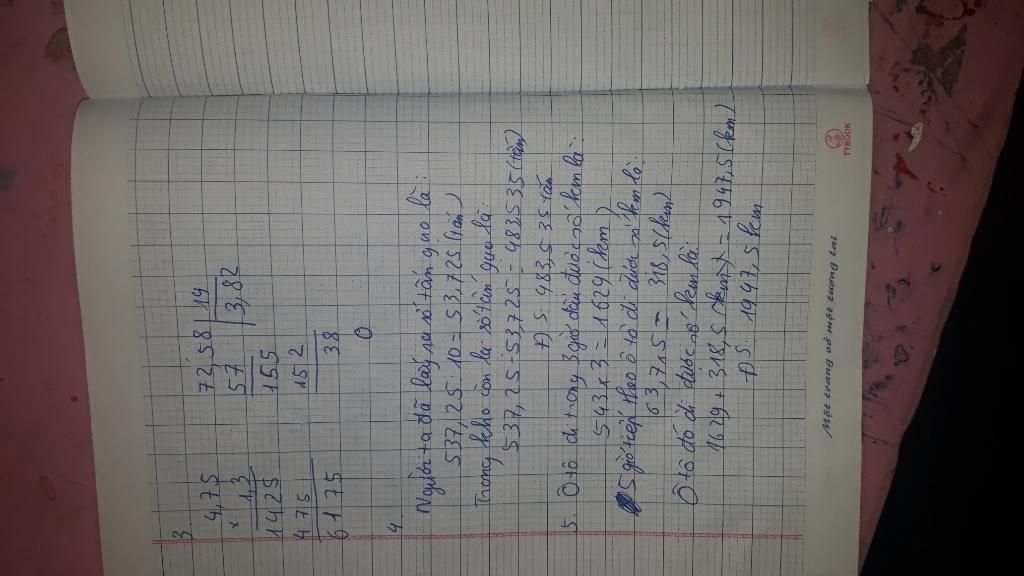 3.
4,75
× 1,3
1425
475
6175
72,58 | 19
57 | 3,82
155
152
38
0
4.
Người ta đã lấy ra số tấn gạo là:
537,25 : 10 = 53,725 (tấn)
Trong kho còn lại số tấn gạo là:
537,25 - 53,725 = 483,535 (tấn)
Đ S: 483,535 tấn
5. Ô tô đi trong 3 giờ đầu được số km là:
543 x 3 = 1629 (km)
5 giờ tiếp theo ô tô đi được số km là:
63,7 x 5 = 318,5 (km)
Ô tô đó đi được số km là:
1629 + 318,5 (km) = 1947,5 (km)
Đ S: 1947,5 km
Một trang vở một tương lai
TTBOOK